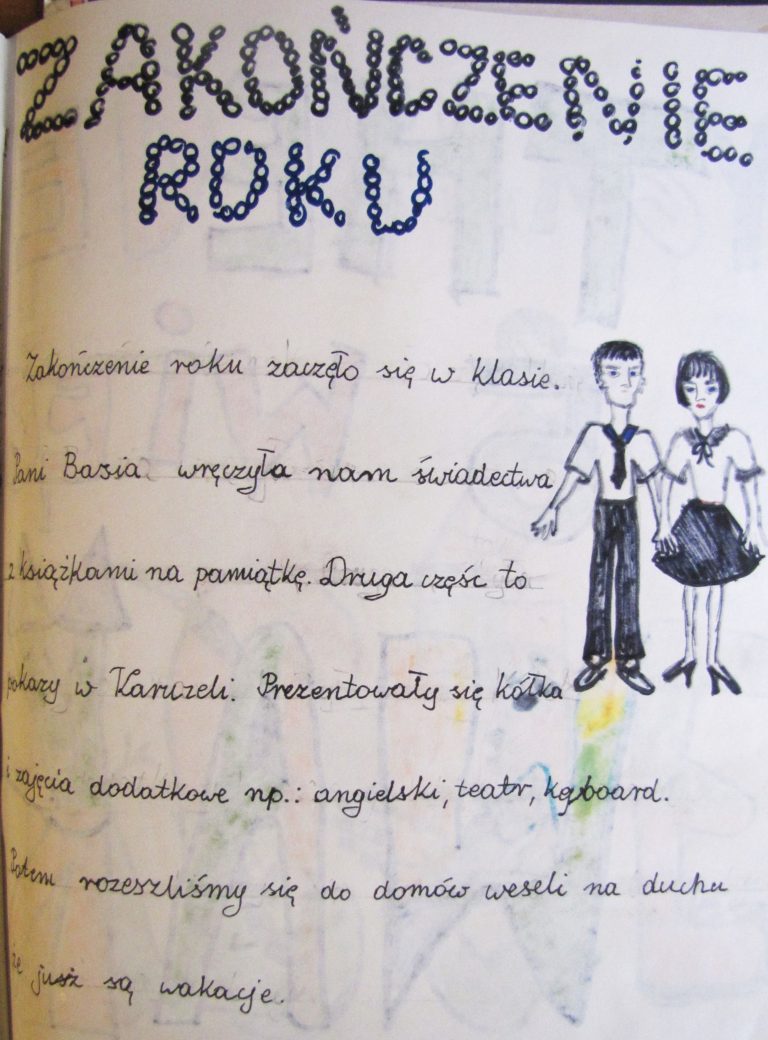 ZAKOŃCZENIE
ROKU
Zakończenie roku zaczęło się w klasie.
Pani Basia wręczyła nam świadectwa
z książkami na pamiątkę. Druga częśc to
pokazy w Karuzeli. Prezentowały się kółka
i zajęcia dodatkowe np.: angielski, teatr, kgyboard.
Potem rozeszliśmy się do domów weseli na duchu
że jusż są wakacje.